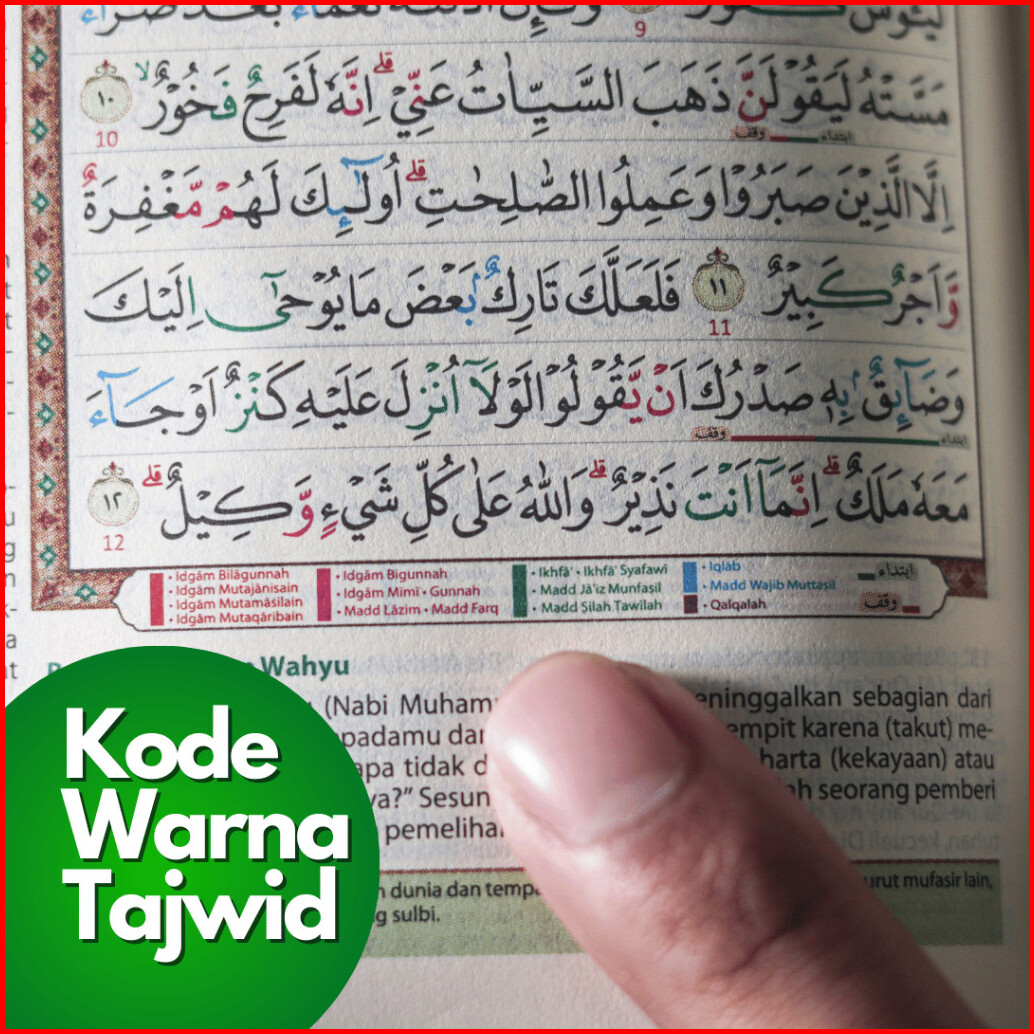 9
مَسَّتْهُ لَيَقُوْلَنَّ ذَهَبَ السَّيِّاٰتُ عَنِّيْ ۗاِنَّهٗ لَفَرِحٌ فَخُوْرٌۙ ١٠
10
وقف ابتداء
اِلَّا الَّذِيْنَ صَبَرُوْا وَعَمِلُوا الصّٰلِحٰتِۗ اُولٰۤىِٕكَ لَهُمْ مَّغْفِرَةٌ
وَّاَجْرٌ كَبِيْرٌ ١١ فَلَعَلَّكَ تَارِكٌۢ بَعْضَ مَا يُوْحٰىٓ اِلَيْكَ
11
وَضَاۤىِٕقٌۢ بِهٖ صَدْرُكَ اَنْ يَّقُوْلُوْا لَوْلَآ اُنْزِلَ عَلَيْهِ كَنْزٌ اَوْ جَاۤءَ
وقف ابتداء
مَعَهٗ مَلَكٌۗ اِنَّمَآ اَنْتَ نَذِيْرٌۗ وَاللّٰهُ عَلٰى كُلِّ شَيْءٍ وَّكِيْلٌۗ ١٢
12
• Idgām Bilāgunnah
• Idgām Mutajānisain
• Idgām Mutamāsilain
• Idgām Mutaqāribain
• Idgām Bigunnah
• Idgām Mimī • Gunnah
• Madd Lāzim • Madd Farq
• Ikhfā' • Ikhfā' Syafawi
• Madd Jā'iz Munfaṣil
• Madd Ṣilah Ṭawīlah
• Iqlāb
• Madd Wajib Muttaṣil
• Qalqalah
ابتداء
وقف
Wahyu
(Nabi Muham eninggalkan sebagian dari
padamu dan empit karena (takut) me-
apa tidak d harta (kekayaan) atau
ya?” Sesun ah seorang pemberi
pemelihar
dunia dan tempa urut mufasir lain,
g sulbi.
Kode
Warna
Tajwid